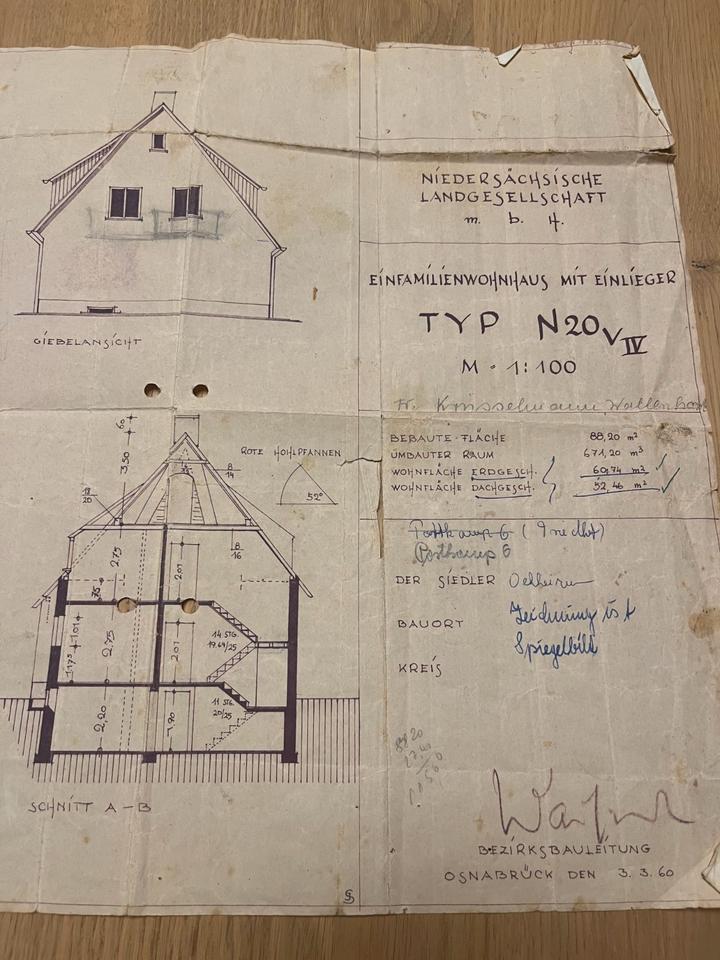 GIEBELANSICHT
60
3,50
ROTE HOHLPFANNEN
52°
8/14
12/20
8/16
2,75
2,01
75
14 STG.
19.64/25
1,01
1,175
2,75
2,01
11 STG.
20/25
2,20
1,90
SCHNITT A-B
NIEDERSÄCHSISCHE
LANDGESELLSCHAFT
m. b. H.
EINFAMILIENWOHNHAUS MIT EINLIEGER
TYP N20 V IV
M · 1:100
BEBAUTE-FLÄCHE 88,20 m²
UMBAUTER RAUM 671,20 m³
WOHNFLÄCHE ERDGESCH. 60,74 m²
WOHNFLÄCHE DACHGESCH. 52,46 m²
DER SIEDLER
BAUORT Zeichnung ist
Spiegelbild
KREIS
BEZIRKSBAULEITUNG
OSNABRÜCK DEN 3.3.60